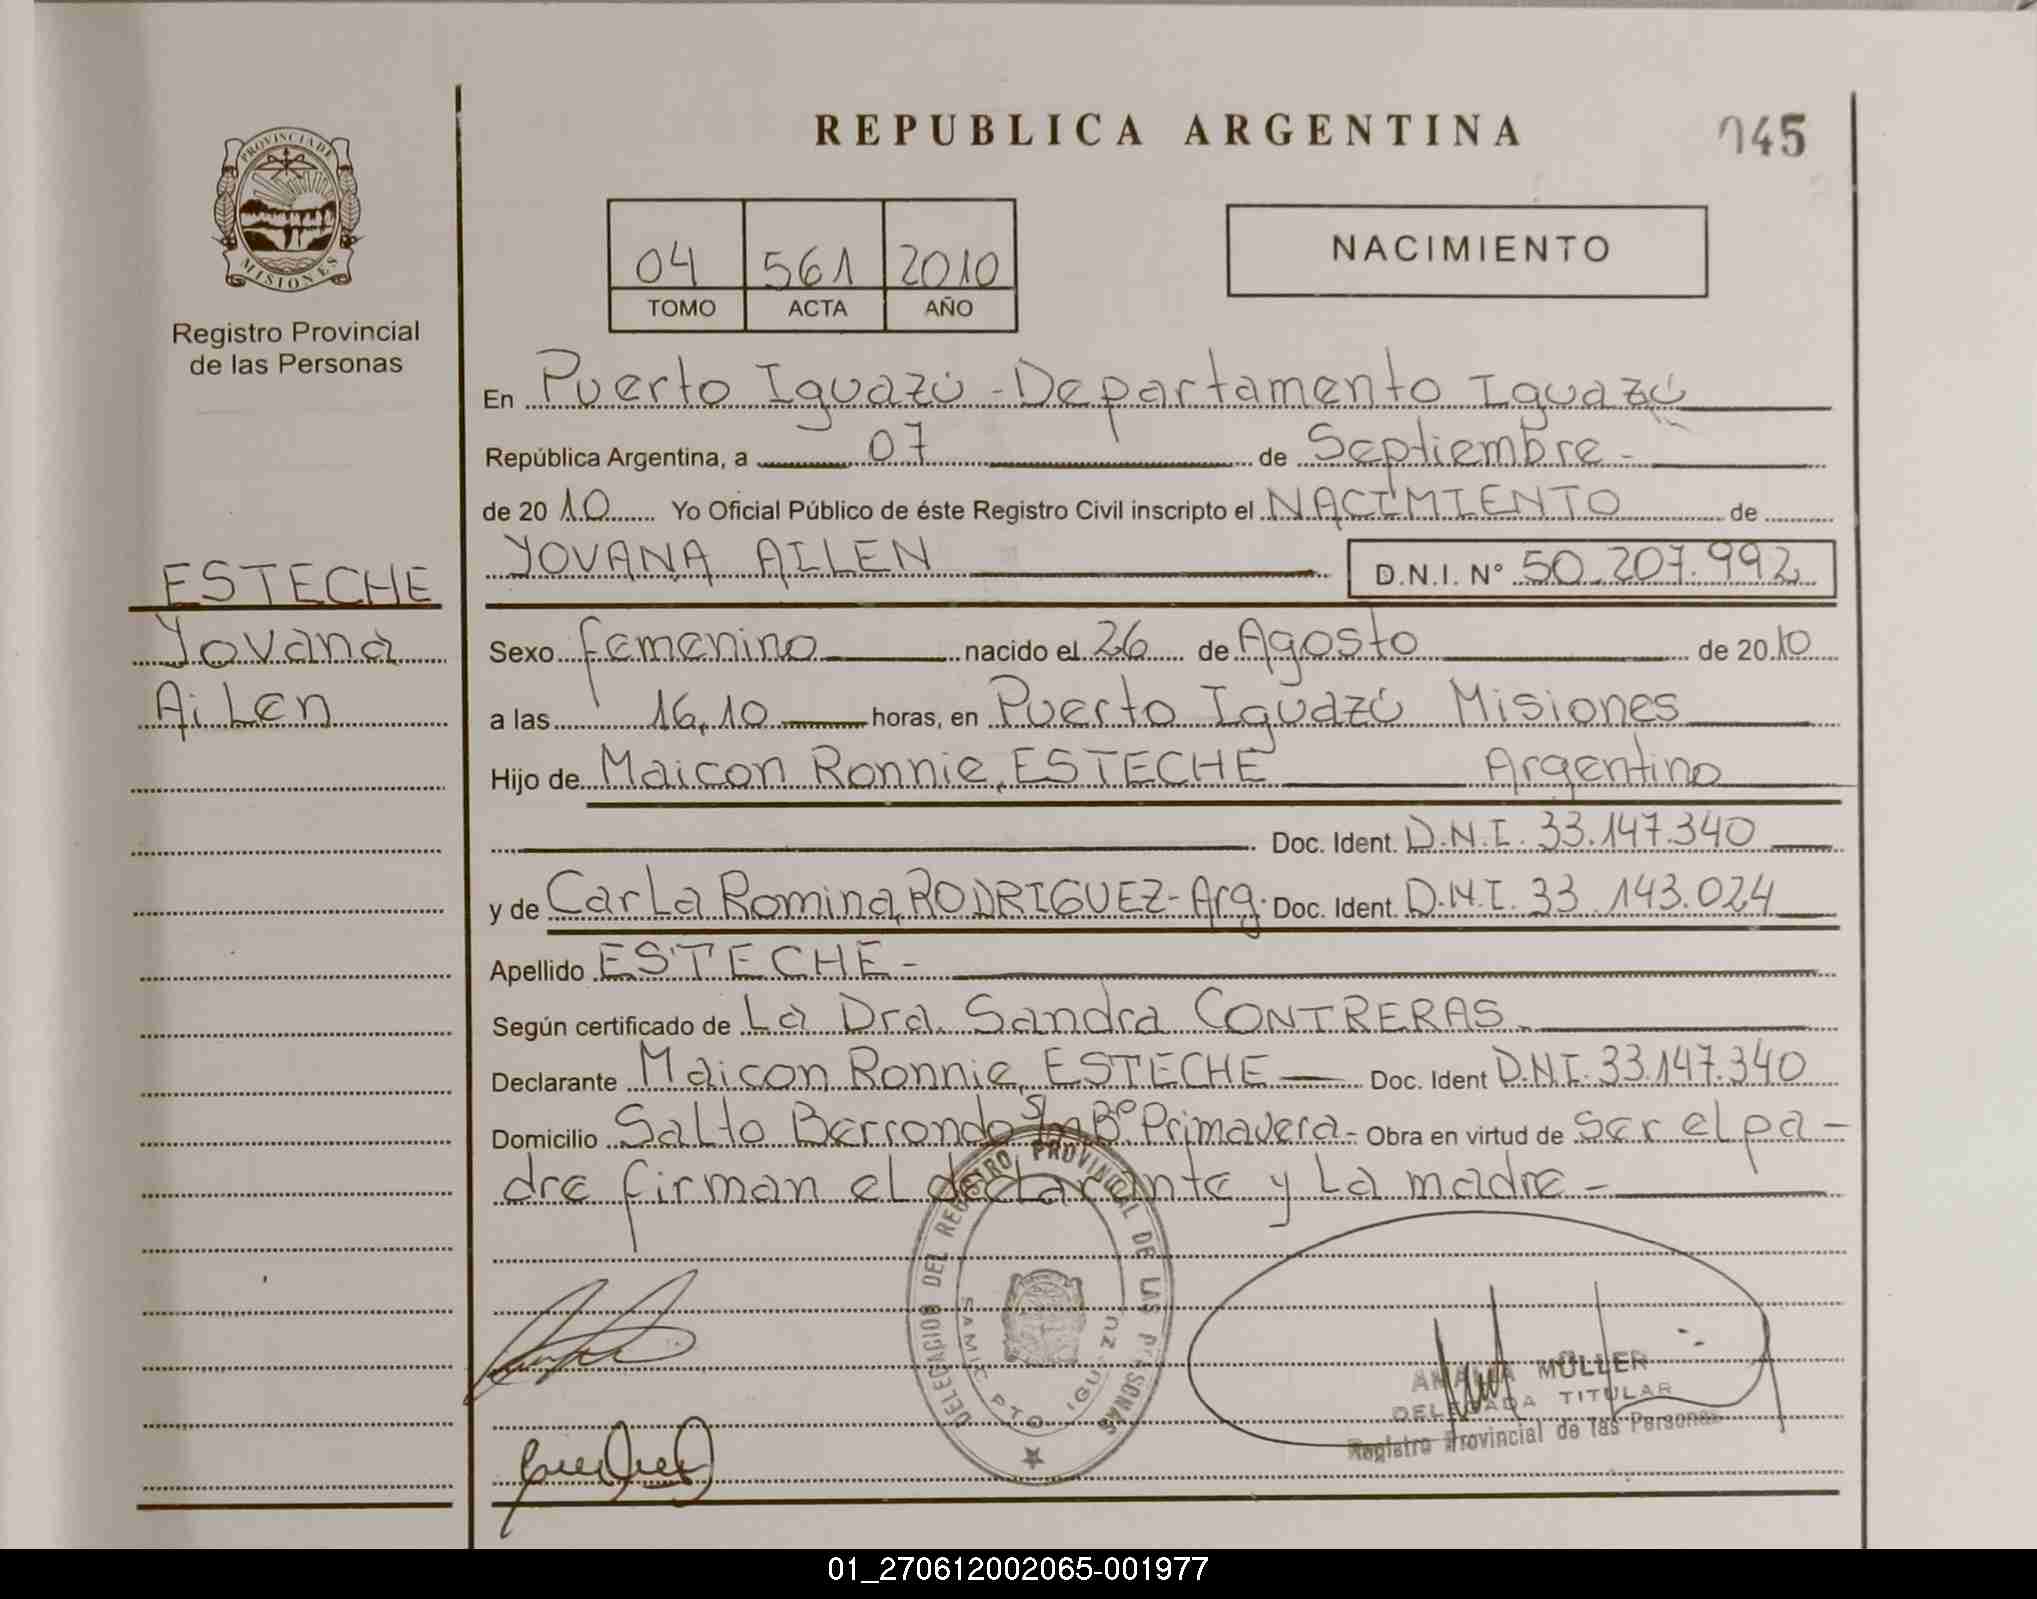 REPUBLICA ARGENTINA
045
PROVINCIA DE
MISIONES
Registro Provincial
de las Personas
04 561 2010
TOMO ACTA AÑO
NACIMIENTO
En Puerto Iguazú - Departamento Iguazú
República Argentina, a 07 de Septiembre -
de 2010 Yo Oficial Público de éste Registro Civil inscripto el NACIMIENTO de
YOVANA AILEN D.N.I. N° 50.207.992
ESTECHE
Yovana
Ailen
Sexo femenino nacido el 26 de Agosto de 2010
a las 16,10 horas, en Puerto Iguazú Misiones
Hijo de Maicon Ronnie, ESTECHE Argentino
Doc. Ident. D.N.I. 33.147.340
y de Carla Romina, RODRIGUEZ - Arg. Doc. Ident. D.N.I. 33.143.024
Apellido ESTECHE -
Según certificado de La Dra. Sandra CONTRERAS
Declarante Maicon Ronnie, ESTECHE Doc. Ident D.N.I. 33.147.340
Domicilio Salto Berrondo s/n B° Primavera - Obra en virtud de ser el pa-
dre firman el declarante y la madre -
DELEGACION DEL REGISTRO PROVINCIAL DE LAS PERSONAS
SAMIC PTO IGUAZU
AMALIA MÜLLER
DELEGADA TITULAR
Registro Provincial de las Personas
01_270612002065-001977